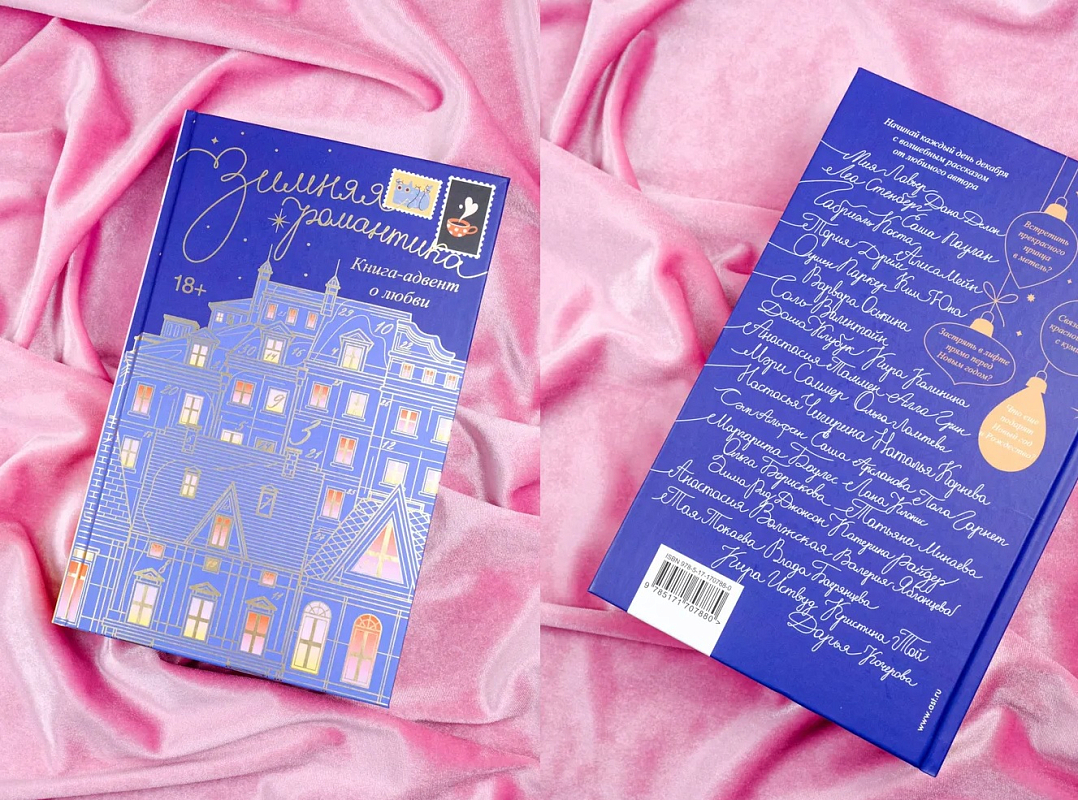 Зимняя
романтика
Книга-адвент
о любви
18+
29
10
16
9
3
5
21
Начинай каждый день декабря
с волшебным рассказом
от любимого автора
Мия Лавроу Дана Делон
Леа Стенберг Саша Поцман
Габриэль Коста Алиса Мейн
Тория Дрим Ким Юна
Оушен Паркер
Варвара Оськина
Саль Валентайн
Даша Коубут Кира Калинина
Анастасия Таммен Алла Грин
Мэри Соммер Ольга Ломтева
Настасья Чичерина Наталья Корнева
Сэм Альфсен Саша Асланова Пола Гарнет
Маргерита Бояулес Лана Клокис
Ольга Борискова Татьяна Минаева
Элли Рид-Джонсон Катерина Райдер
Анастасия Волжская Валерия Яблонцева
Тая Токаева Влада Багрянцева
Кира Иствуд Кристина Той
Дарья Кочерова
Встретить
прекрасного
принца
в метель?
Застрять в лифте
прямо перед
Новым годом?
ISBN 978-5-17-170788-0
9 785171 707880 >
www.ast.ru